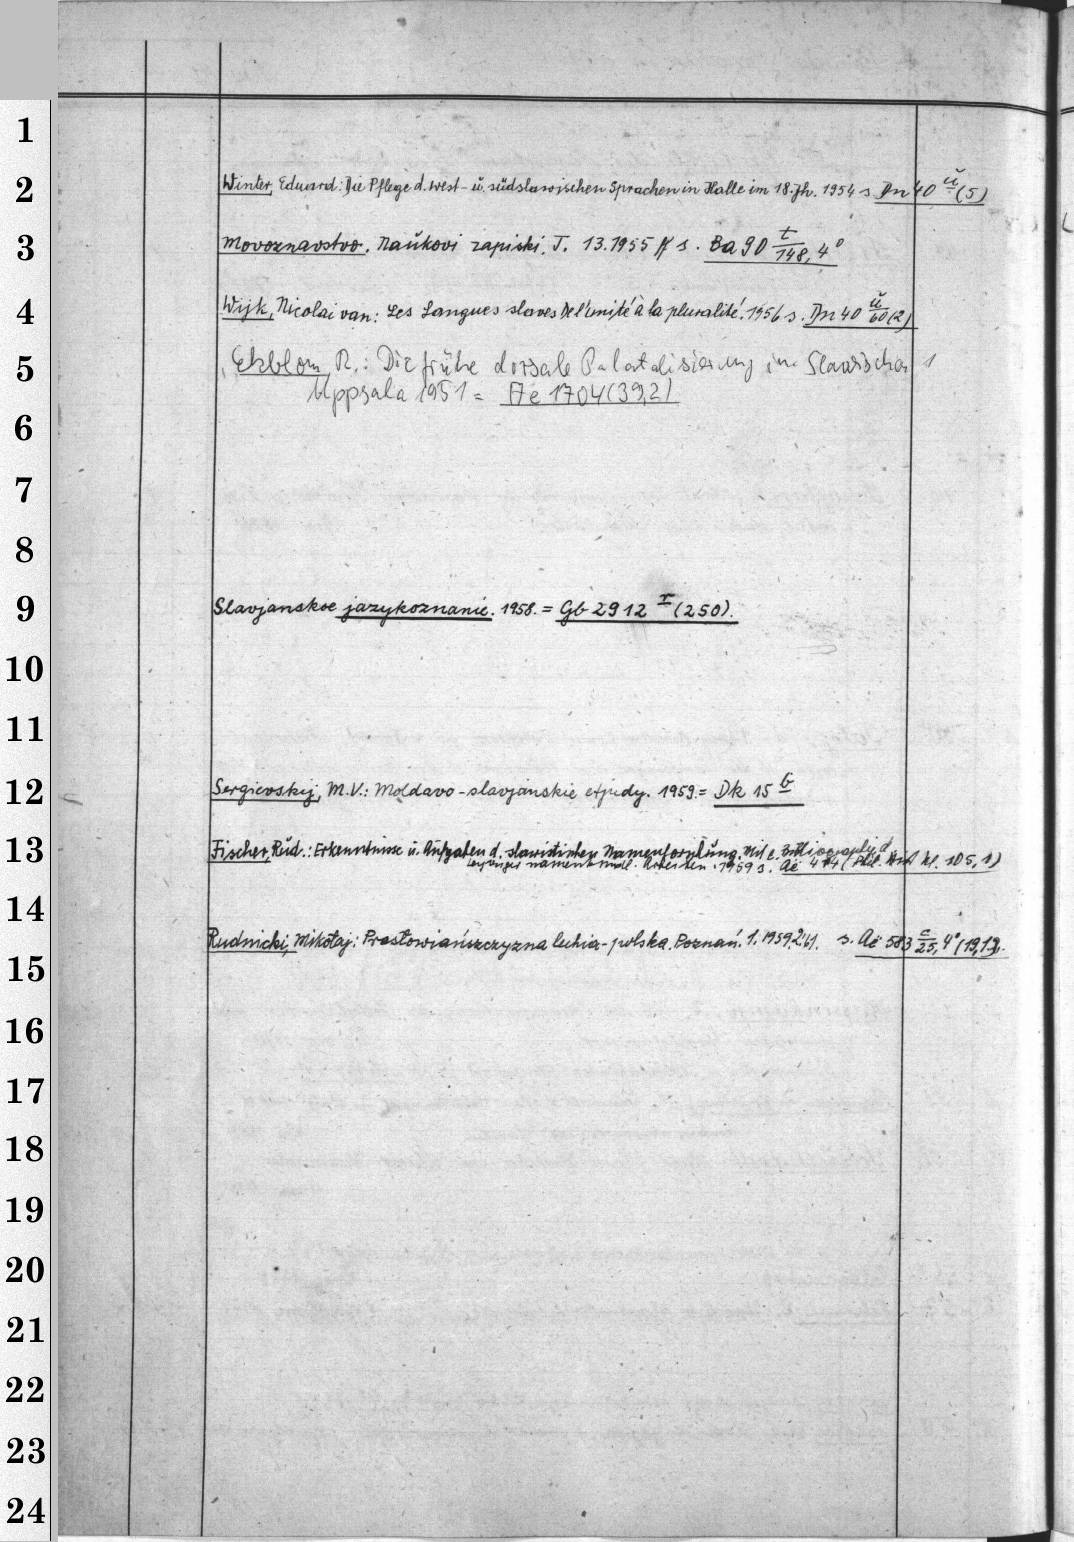 1
2
3
4
5
6
7
8
9
10
11
12
13
14
15
16
17
18
19
20
21
22
23
24
Winter, Eduard: Die Pflege d. west- u. südslawischen Sprachen in Halle im 18. Jh. 1954 s. Dn 40 ü (5)
Movoznavstvo. Naukovi zapiski. T. 13. 1955 ff s. Ba 90 t/148, 4°
Wijk, Nicolai van: Les Langues slaves De l'unité à la pluralité. 1956 s. Dn 40 ü/60 (2)
Ekblom, R.: Die frühe dorsale Palatalisierung im Slawischen
Uppsala 1951 = Ae 1704 (39,2)
Slavjanskoe jazykoznanie. 1958. = Gb 2912 r (250).
Sergievskij, M.V.: Moldavo-slavjanskie etjudy. 1959. = Dk 15 b
Fischer, Rud.: Erkenntnisse u. Aufgaben d. slawistischen Namenforschung. Mit e. Bibliographie d.
Leipziger namenkundl. Arbeiten. 1959 s. Ae 474 (Phil. Hist Kl. 105, 1)
Rudnicki, Mikołaj: Prasłowiańszczyzna lechia-polska. Poznań. 1. 1959, 2. 61. s. Ae 583 c/25, 4° (19,12).